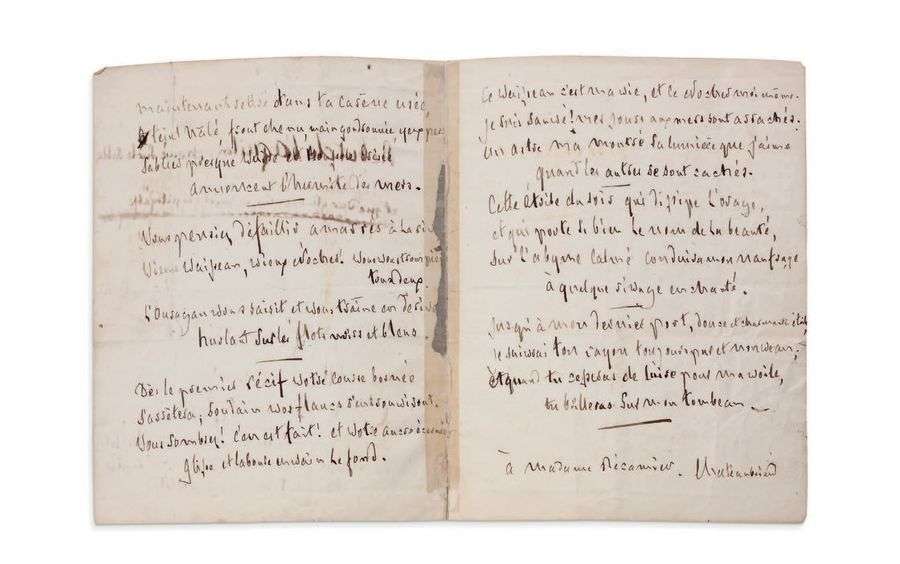 maintenant retiré dans ta carène usée
teint hâlé front chenu, main goudronnée, yeux pers
sablier presque vide et boussole brisée
annoncent l'hermite des mers.
Vous pensiez défaillir amarrés à la rive
Vieux vaisseau, vieux nocher! vous vous trompiez
tous deux
L'ouragan vous saisit et vous traîne en dérive
hurlant sur les flots noirs et bleus
Dès le premier récif votre course bornée
s'arrêtera; soudain vos flancs s'entrouvriront.
Vous sombrez! c'en est fait! et votre ancre écornée
glisse et laboure en vain le fond.
Ce vaisseau c'est ma vie, et ce nocher moi-même.
je suis sauvé! mes jours aux mers sont arrachés.
un astre m'a montré sa lumière que j'aime
quand les autres se sont cachés.
Cette étoile du soir qui dissipe l'orage,
et qui porte si bien le nom de la beauté,
sur l'abyme calmé conduira mon naufrage
à quelque rivage enchanté.
jusqu'à mon dernier port, douce et charmante étoile
je suivrai ton rayon toujours pur et nouveau;
et quand tu cesseras de luire pour ma voile,
tu brilleras sur mon tombeau
à madame Récamier. Chateaubriand